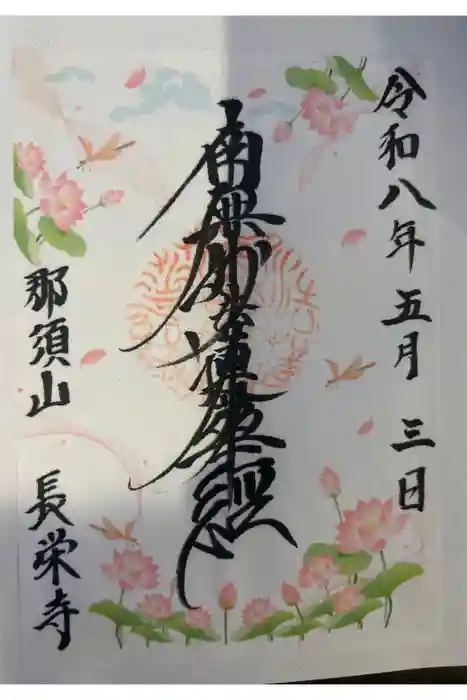 令和八年五月三日
南無妙法蓮華経
那須山 長栄寺